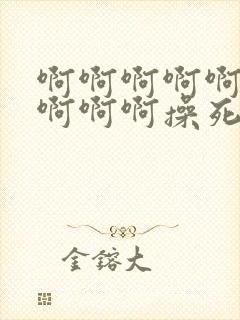 啊啊啊啊啊
啊啊啊操死
金镕大